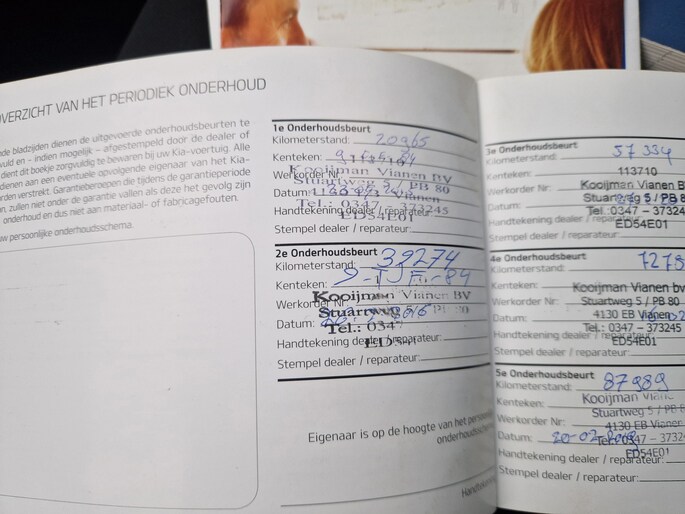 OVERZICHT VAN HET PERIODIEK ONDERHOUD
nde bladzijden dienen de uitgevoerde onderhoudsbeurten te
vuld en - indien mogelijk – afgestempeld door de dealer of
dient dit boekje zorgvuldig te bewaren bij uw Kia-voertuig. Alle
dienen aan een eventuele opvolgende eigenaar van het Kia-
rden verstrekt. Garantieberoepen die tijdens de garantieperiode
n, zullen niet onder de garantie vallen als deze het gevolg zijn
onderhoud en dus niet aan materiaal- of fabricagefouten.
uw persoonlijke onderhoudsschema.
1e Onderhoudsbeurt
Kilometerstand: 20965
Kenteken:
Werkorder Nr: Kooijman Vianen BV
Stuartweg 5 / PB 80
Datum:
Tel.: 0347 - 373245
Handtekening dealer / reparateur:
ED54E01
Stempel dealer / reparateur:
2e Onderhoudsbeurt
Kilometerstand: 39274
Kenteken:
Werkorder Nr: Kooijman Vianen BV
Stuartweg
Datum:
Tel.: 034
Handtekening dealer / reparateur:
Stempel dealer / reparateur:
Eigenaar is op de hoogte van het
onderhoudssche
Handtekening
3e Onderhoudsbeurt
Kilometerstand: 57334
Kenteken: 113710
Werkorder Nr: Kooijman Vianen BV
Stuartweg 5 / PB 8
Datum:
Tel. 0347 – 373245
Handtekening dealer / reparateur:
ED54E01
Stempel dealer / reparateur:
4e Onderhoudsbeurt
Kilometerstand: 7279
Kenteken: Kooijman Vianen bv
Werkorder Nr: Stuartweg 5 / PB 80
Datum: 4130 EB Vianen
Tel.: 0347 – 373245
Handtekening dealer / reparateur:
ED54E01
Stempel dealer / reparateur:
5e Onderhoudsbeurt
Kilometerstand: 87989
Kenteken: Kooijman Vianen
Werkorder Nr: Stuartweg 5 / PB 80
4130 EB Vianen
Datum: 20-02-
Tel.: 0347 – 3732
Handtekening dealer / reparateur:
ED54E01
Stempel dealer / reparateur: